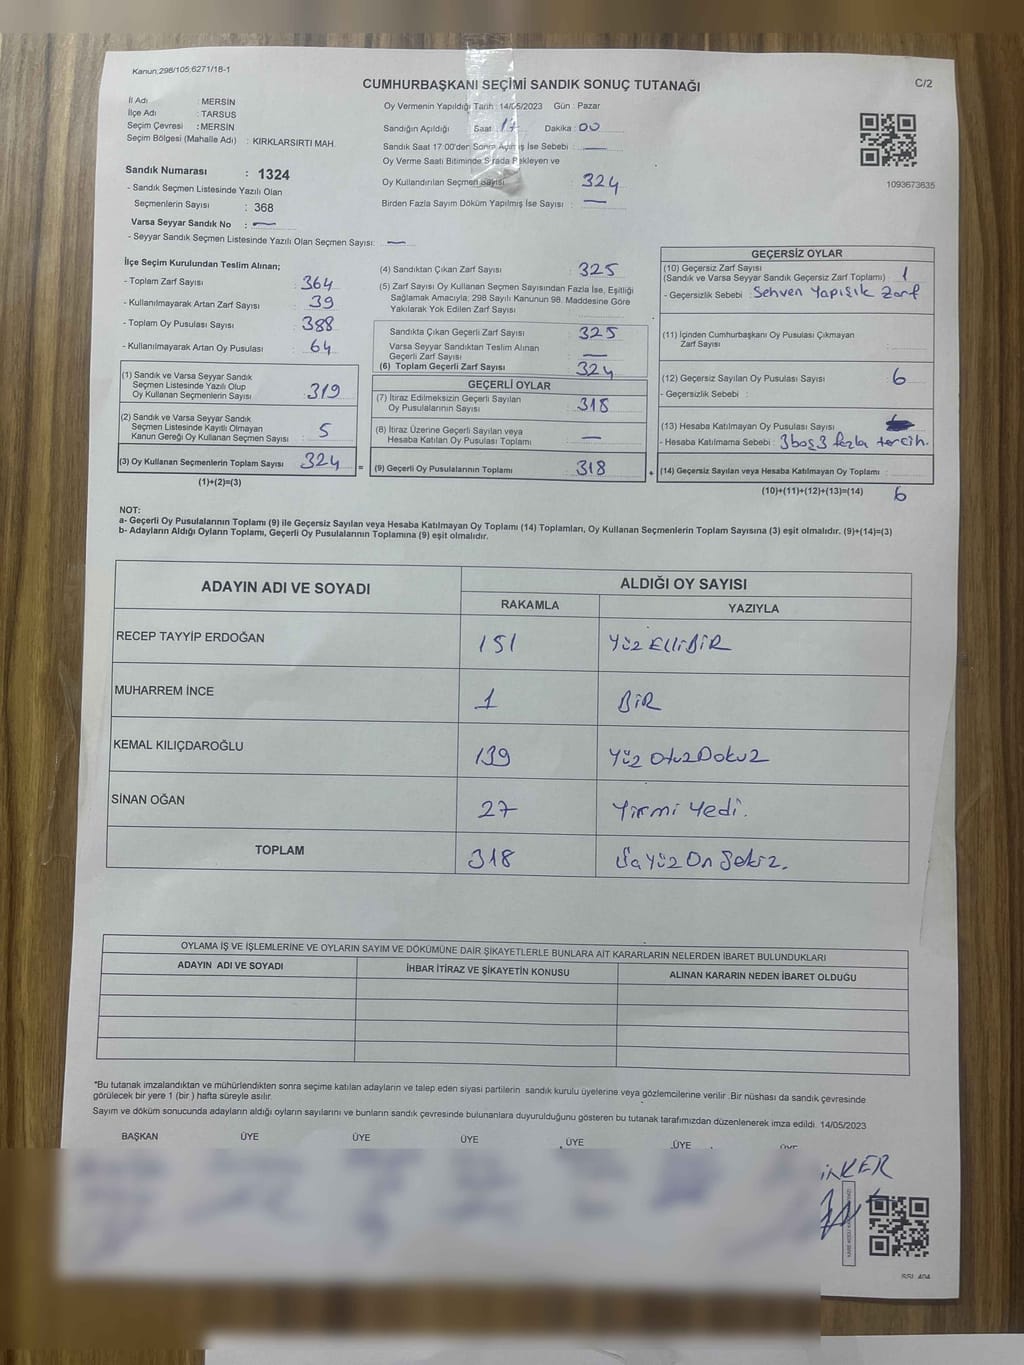 Kanun,298/105,6271/18-1
C/2
CUMHURBAŞKANI SEÇİMİ SANDIK SONUÇ TUTANAĞI
İl Adı : MERSİN
İlçe Adı : TARSUS
Seçim Çevresi : MERSİN
Seçim Bölgesi (Mahalle Adı) : KIRKLARSIRTI MAH.
Sandık Numarası : 1324
- Sandık Seçmen Listesinde Yazılı Olan
Seçmenlerin Sayısı : 368
Varsa Seyyar Sandık No : —
- Seyyar Sandık Seçmen Listesinde Yazılı Olan Seçmen Sayısı: —
Oy Vermenin Yapıldığı Tarih : 14/05/2023 Gün : Pazar
Sandığın Açıldığı Saat : 17 Dakika : 00
Sandık Saat 17:00'den Sonra Açılmış İse Sebebi : —
Oy Verme Saati Bitiminde Sırada Bekleyen ve
Oy Kullandırılan Seçmen Sayısı : 324
Birden Fazla Sayım Döküm Yapılmış İse Sayısı : —
1093673635
İlçe Seçim Kurulundan Teslim Alınan;
- Toplam Zarf Sayısı : 364
- Kullanılmayarak Artan Zarf Sayısı : 39
- Toplam Oy Pusulası Sayısı : 388
- Kullanılmayarak Artan Oy Pusulası : 64
(1) Sandık ve Varsa Seyyar Sandık
Seçmen Listesinde Yazılı Olup
Oy Kullanan Seçmenlerin Sayısı : 319
(2) Sandık ve Varsa Seyyar Sandık
Seçmen Listesinde Kayıtlı Olmayan
Kanun Gereği Oy Kullanan Seçmen Sayısı : 5
(3) Oy Kullanan Seçmenlerin Toplam Sayısı : 324
(1)+(2)=(3)
(4) Sandıktan Çıkan Zarf Sayısı : 325
(5) Zarf Sayısı Oy Kullanan Seçmen Sayısından Fazla İse, Eşitliği
Sağlamak Amacıyla; 298 Sayılı Kanunun 98. Maddesine Göre
Yakılarak Yok Edilen Zarf Sayısı :
Sandıkta Çıkan Geçerli Zarf Sayısı : 325
Varsa Seyyar Sandıktan Teslim Alınan
Geçerli Zarf Sayısı : —
(6) Toplam Geçerli Zarf Sayısı : 324
GEÇERLİ OYLAR
(7) İtiraz Edilmeksizin Geçerli Sayılan
Oy Pusulalarının Sayısı : 318
(8) İtiraz Üzerine Geçerli Sayılan veya
Hesaba Katılan Oy Pusulası Toplamı : —
= (9) Geçerli Oy Pusulalarının Toplamı : 318
GEÇERSİZ OYLAR
(10) Geçersiz Zarf Sayısı
(Sandık ve Varsa Seyyar Sandık Geçersiz Zarf Toplamı) : 1
- Geçersizlik Sebebi : Sehven Yapışık Zarf
(11) İçinden Cumhurbaşkanı Oy Pusulası Çıkmayan
Zarf Sayısı :
(12) Geçersiz Sayılan Oy Pusulası Sayısı : 6
- Geçersizlik Sebebi :
(13) Hesaba Katılmayan Oy Pusulası Sayısı :
- Hesaba Katılmama Sebebi : 3 boş 3 fazla tercih.
+ (14) Geçersiz Sayılan veya Hesaba Katılmayan Oy Toplamı :
(10)+(11)+(12)+(13)=(14) 6
NOT:
a- Geçerli Oy Pusulalarının Toplamı (9) ile Geçersiz Sayılan veya Hesaba Katılmayan Oy Toplamı (14) Toplamları, Oy Kullanan Seçmenlerin Toplam Sayısına (3) eşit olmalıdır. (9)+(14)=(3)
b- Adayların Aldığı Oyların Toplamı, Geçerli Oy Pusulalarının Toplamına (9) eşit olmalıdır.
ADAYIN ADI VE SOYADI ALDIĞI OY SAYISI
RAKAMLA YAZIYLA
RECEP TAYYİP ERDOĞAN 151 Yüz ElliBİR
MUHARREM İNCE 1 BİR
KEMAL KILIÇDAROĞLU 139 Yüz OtuzDokuz
SİNAN OĞAN 27 Yirmi Yedi.
TOPLAM 318 Üç Yüz On Sekiz.
OYLAMA İŞ VE İŞLEMLERİNE VE OYLARIN SAYIM VE DÖKÜMÜNE DAİR ŞİKAYETLERLE BUNLARA AİT KARARLARIN NELERDEN İBARET BULUNDUKLARI
ADAYIN ADI VE SOYADI İHBAR İTİRAZ VE ŞİKAYETİN KONUSU ALINAN KARARIN NEDEN İBARET OLDUĞU
*Bu tutanak imzalandıktan ve mühürlendikten sonra seçime katılan adayların ve talep eden siyasi partilerin sandık kurulu üyelerine veya gözlemcilerine verilir .Bir nüshası da sandık çevresinde
görülecek bir yere 1 (bir ) hafta süreyle asılır.
Sayım ve döküm sonucunda adayların aldığı oyların sayılarını ve bunların sandık çevresinde bulunanlara duyurulduğunu gösteren bu tutanak tarafımızdan düzenlenerek imza edildi. 14/05/2023
BAŞKAN ÜYE ÜYE ÜYE ÜYE ÜYE ÜYE